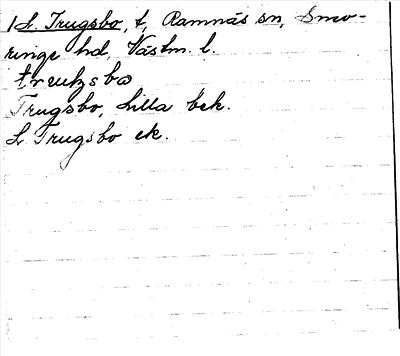 1 L. Trugsbo, t, Ramnäs sn, Snev-
ringe hd, Västm. l.
truksbo
Trugsbo, Lilla bek.
L. Trugsbo ek.